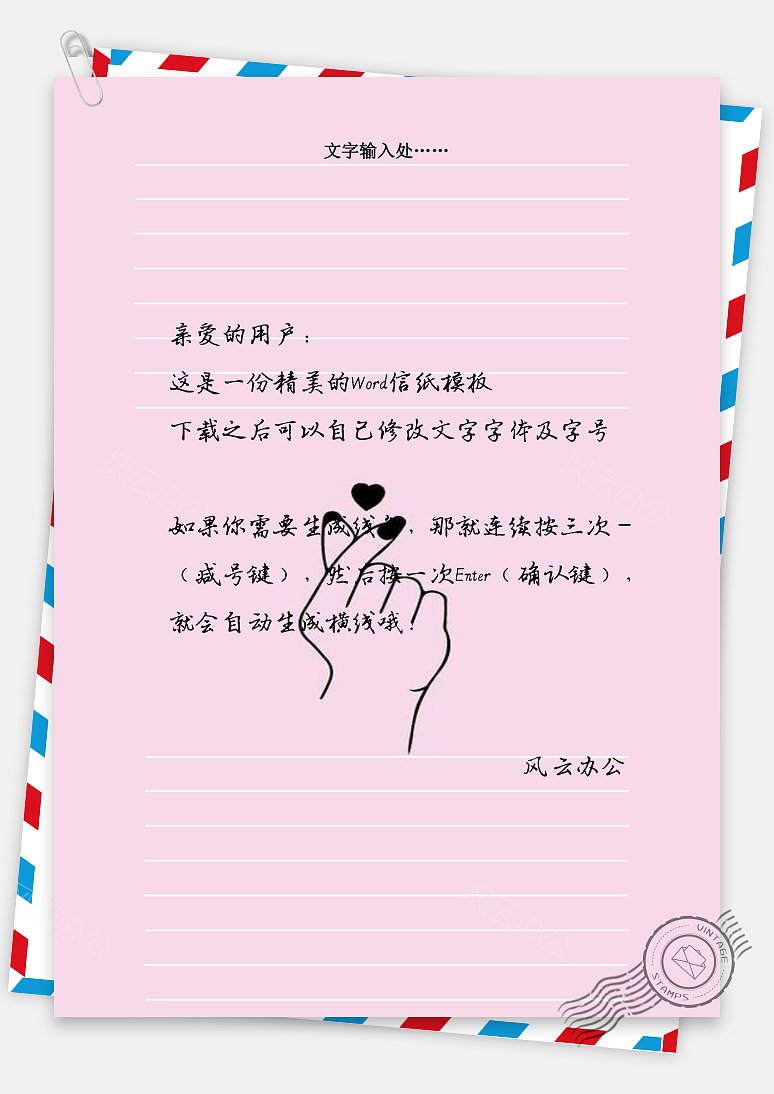 文字输入处……
亲爱的用户：
这是一份精美的Word信纸模板
下载之后可以自己修改文字字体及字号
如果你需要生成线条，那就连续按三次－
（减号键），然后按一次Enter（确认键），
就会自动生成横线哦！
风云办公
风云办公
风云办公
风云办公
风云办公
VINTAGE
STAMPS